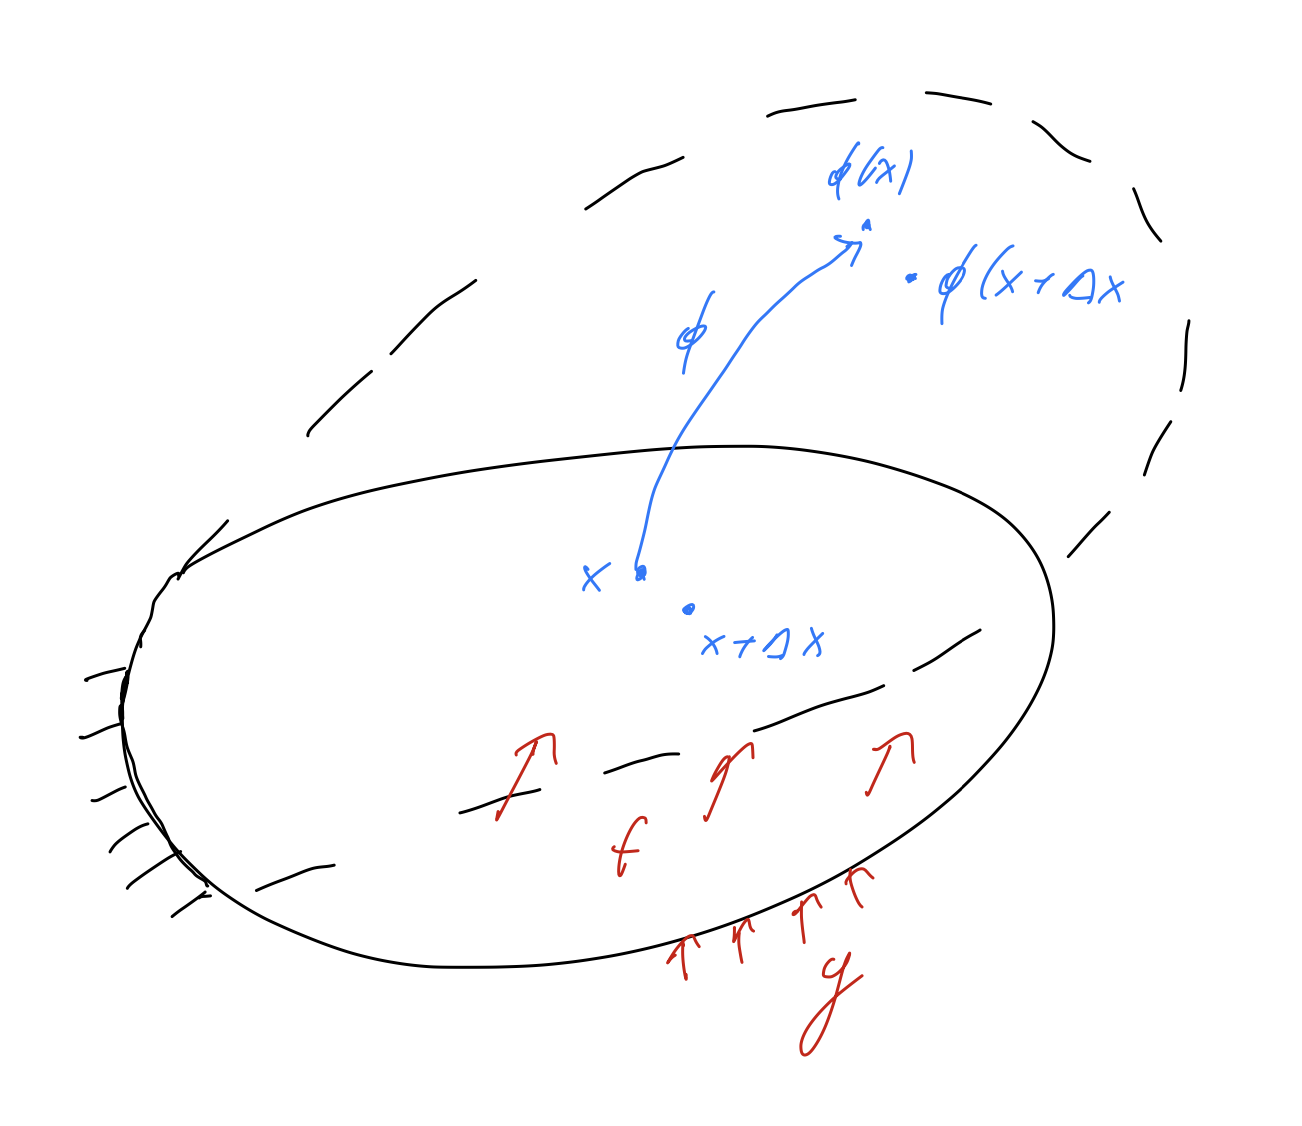 ϕ(x)
ϕ(x+Δx
ϕ
x
x+Δx
f
g